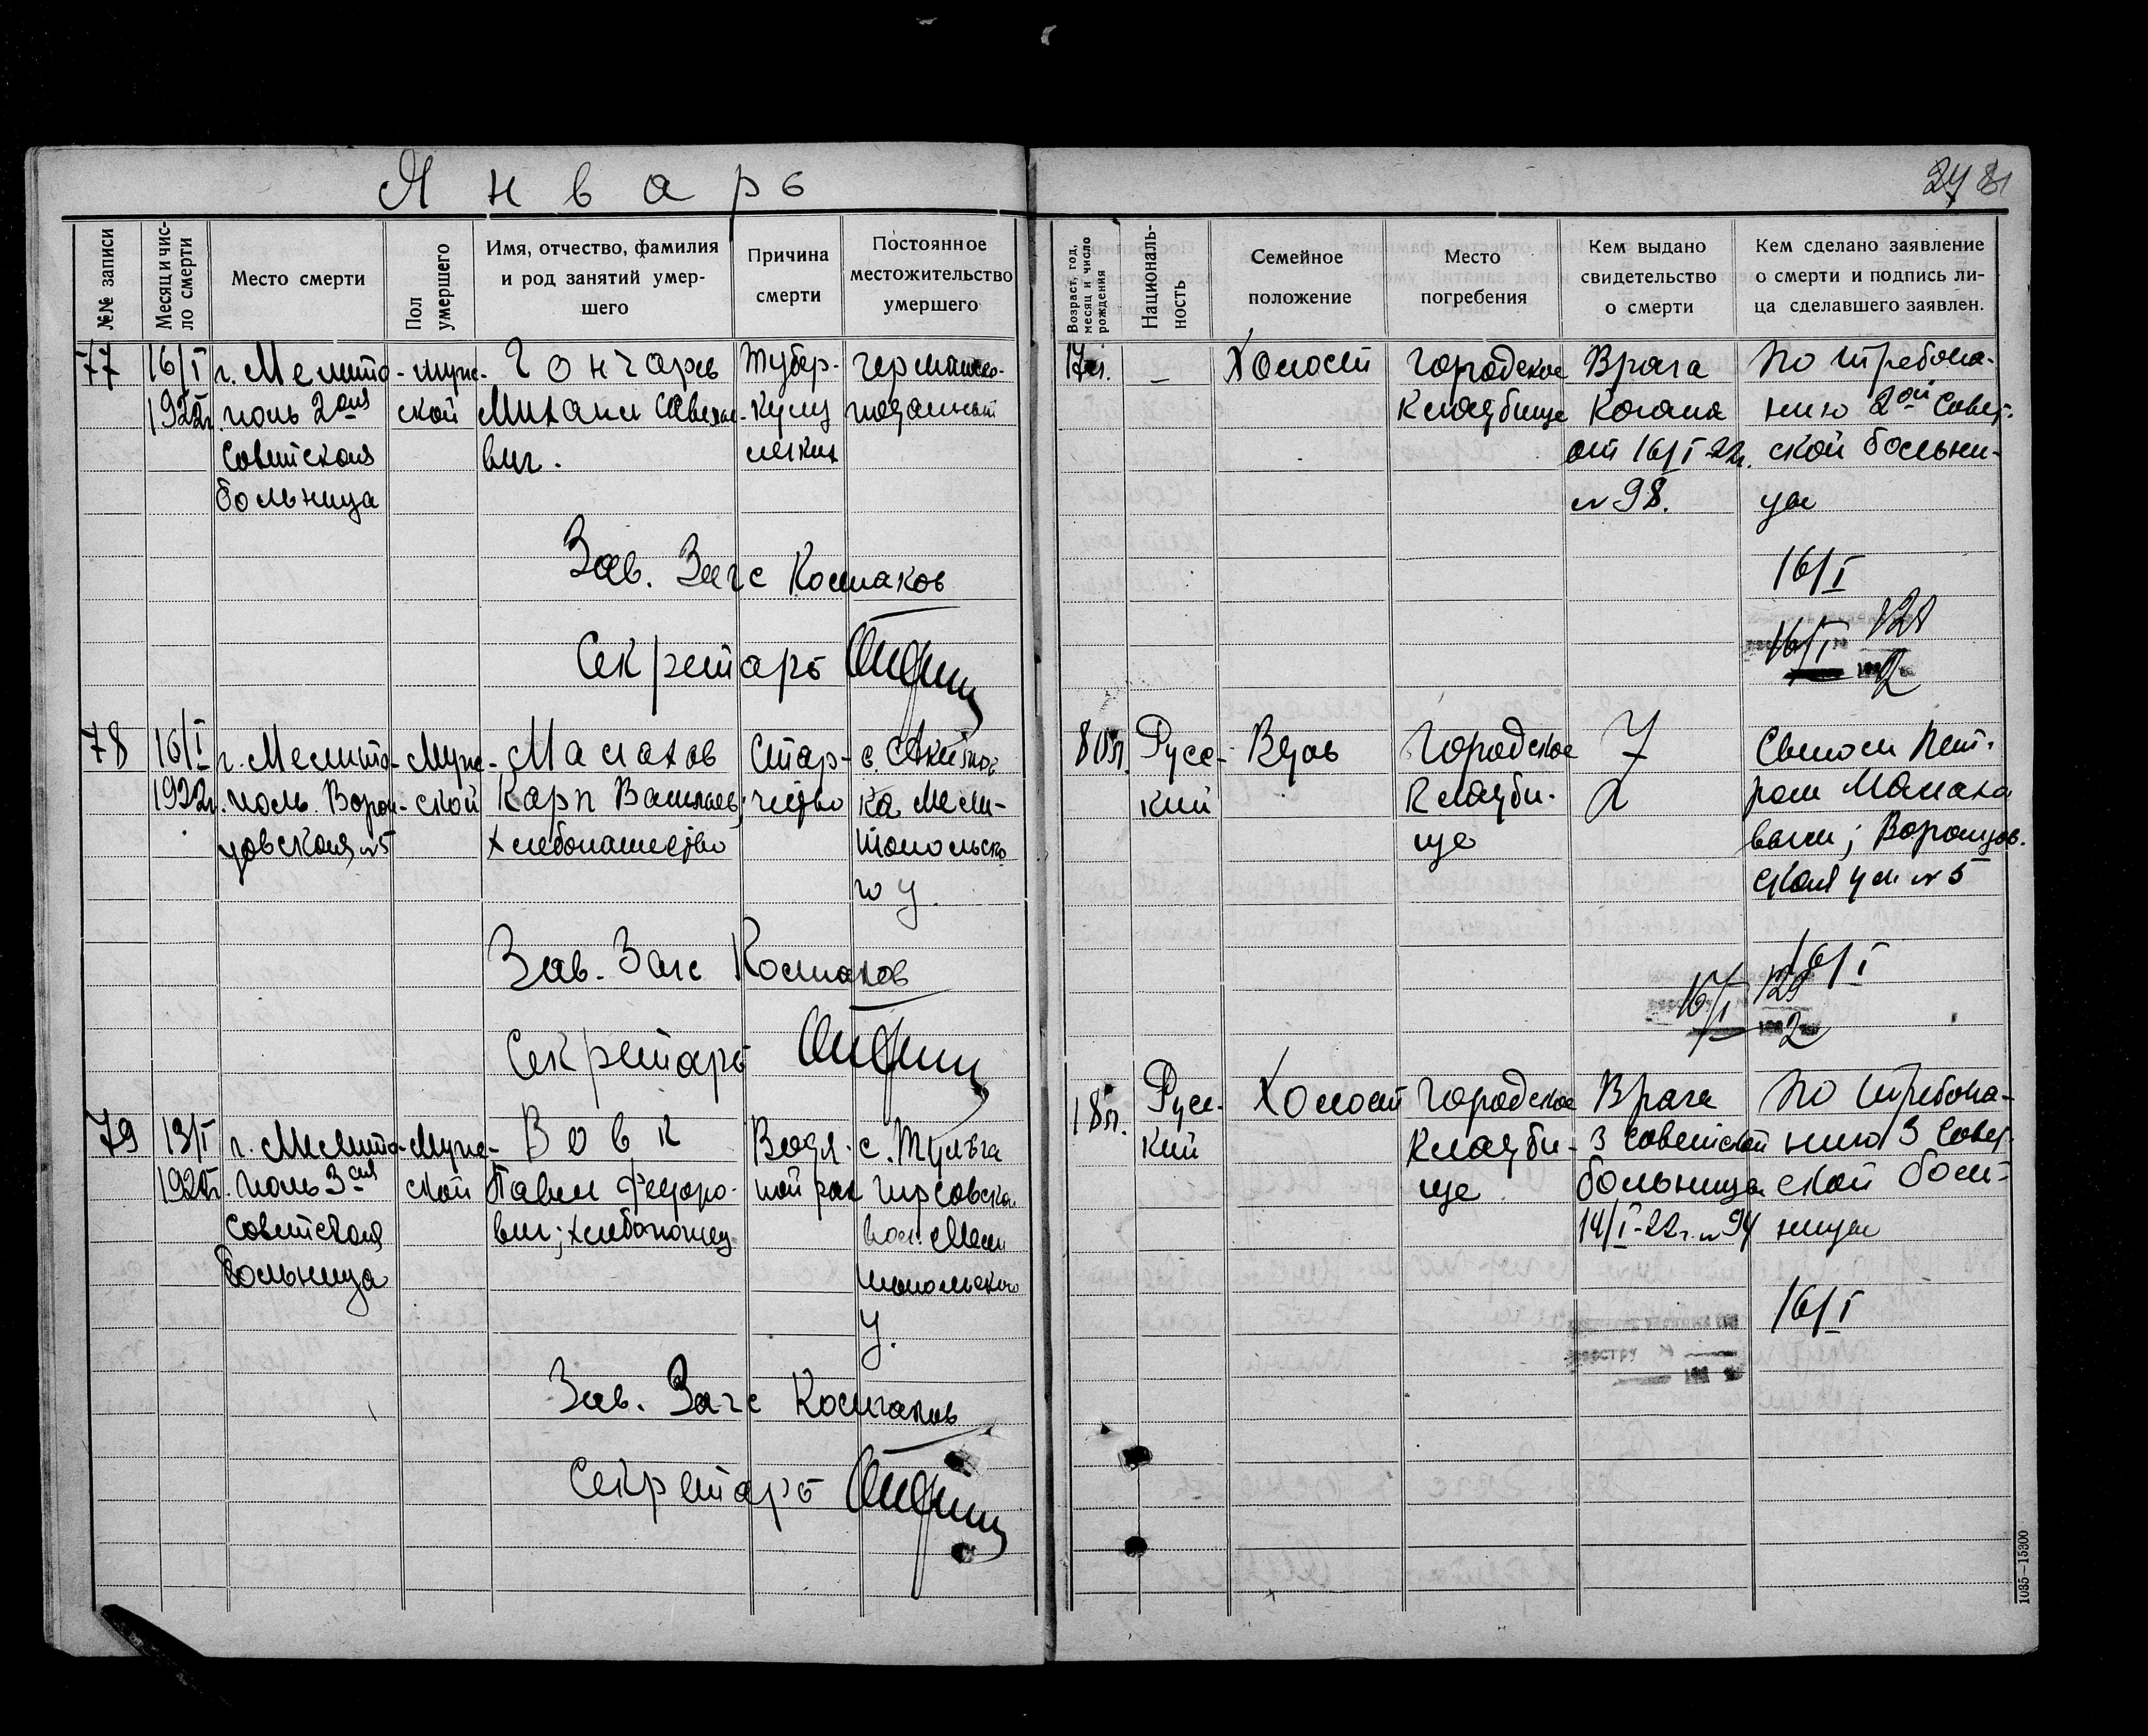 Январь
81
№№ записи
Месяц и число смерти
Место смерти
Пол умершего
Имя, отчество, фамилия
и род занятий умер-
шего
Причина
смерти
Постоянное
местожительство
умершего
Возраст, год,
месяц и число
рождения
Националь-
ность
Семейное
положение
Место
погребения
Кем выдано
свидетельство
о смерти
Кем сделано заявление
о смерти и подпись ли-
ца сделавшего заявлен.
77
16/I
1922г.
г. Мелито-
поль 2ая
Советская
больница
муж-
ской
Гончарь
Михаил
вич.
Тубер-
кулез
легких
17л.
—
Холост
Городское
Кладбище
Врача
Когана
от 16/I 22г.
№ 98.
По требова-
нию 2ой Совет-
ской больни-
цы
16/I
Зав. Загс
Секретарь
16/I
78
16/I
1922г.
г. Мелито-
поль. Ворон-
цовская, №5
Муж-
ской
Малахов
Карп Васильев;
хлебопашество
Стар-
чество
с.
ка Мели-
топольско
го у.
80л.
Русс-
кий
Вдов
Городское
Кладби-
ще
Сыном Пет-
ром Малахо
вым; Воронцов.
ская ул. №5
16/I
Зав. Загс
Секретарь
16/I
2
79
13/I
1922г.
г. Мелито-
поль 3ая
Советская
Больница
Муж-
ской
Вовк
Павел Федоро-
вич; хлебопашец
Водя-
ной рак
с.
вол. Мели
топольского
у.
18л.
Русс-
кий
Холост
Городское
Кладби-
ще
Врача
3 Советской
больницы
14/I-22г. № 94
По требова-
нию 3 Совет-
ской боль-
ницы
16/I
Зав. Загс
Секретарь
1035—15300